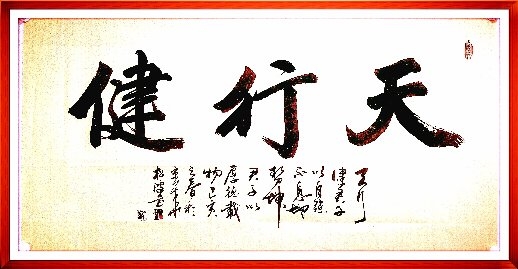 天行健
天行
健君子
以自强
不息地
势坤
君子以
厚德载
物己亥
之春於